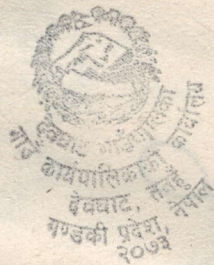 देवघाट गाउँपालिका
गाउँ कार्यपालिकाको कार्यालय
देवघाट, तनहुँ, नेपाल
गण्डकी प्रदेश,
२०७३